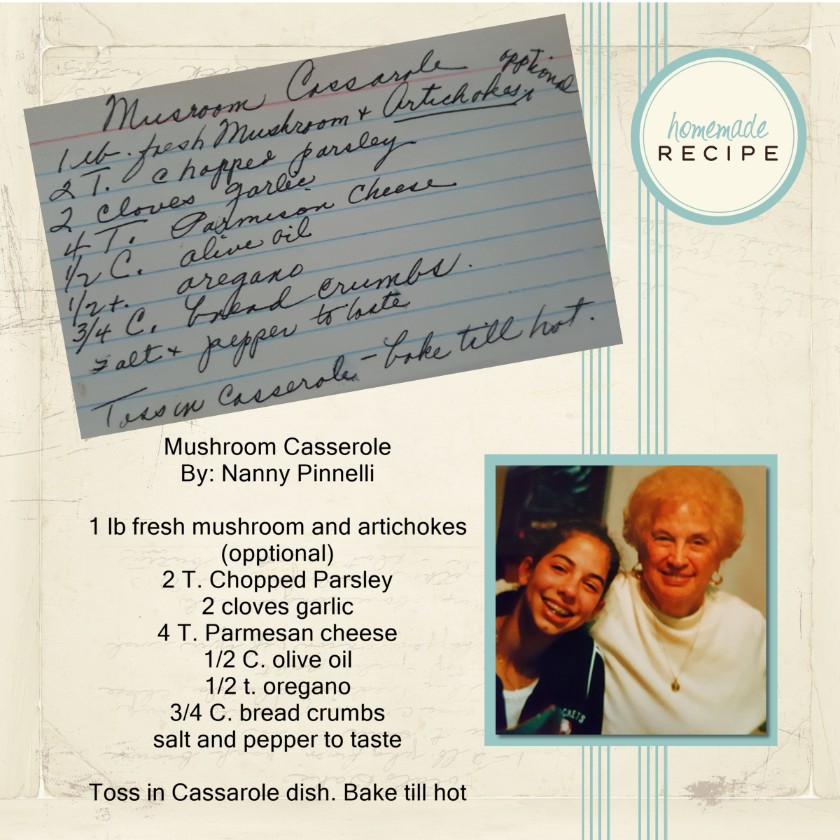 Musroom Cassarole
opptional
1 lb. fresh Mushroom + Artichokes
2 T. Chopped parsley
2 cloves garlic
4 T. Parmison Cheese
1/2 C. olive oil
1/2 t. oregano
3/4 C. bread crumbs.
salt + pepper to taste
Toss in Casserole - bake till hot.
homemade
RECIPE
Mushroom Casserole
By: Nanny Pinnelli
1 lb fresh mushroom and artichokes
(opptional)
2 T. Chopped Parsley
2 cloves garlic
4 T. Parmesan cheese
1/2 C. olive oil
1/2 t. oregano
3/4 C. bread crumbs
salt and pepper to taste
Toss in Cassarole dish. Bake till hot